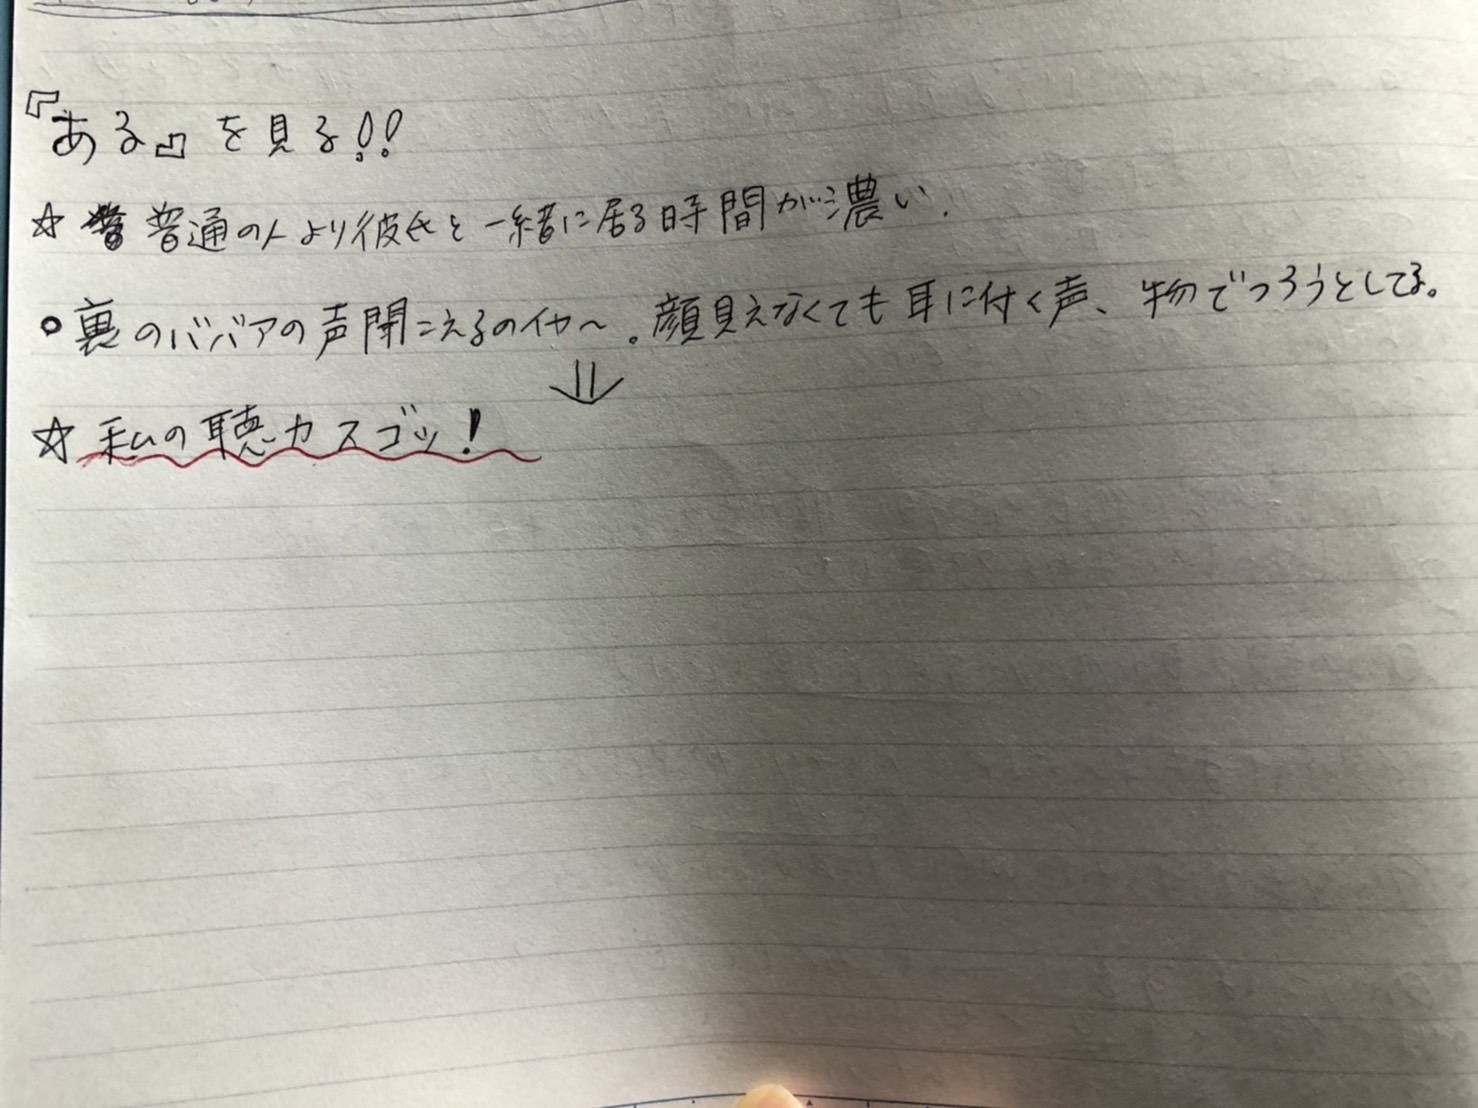 『ある』を見る!!
☆ 普通の人より彼氏と一緒に居る時間が濃い.
○裏のババアの声聞こえるのイヤ〜。顔見えなくても耳に付く声、物でつろうとしてる。
⇓
☆ 私の聴力スゴッ!